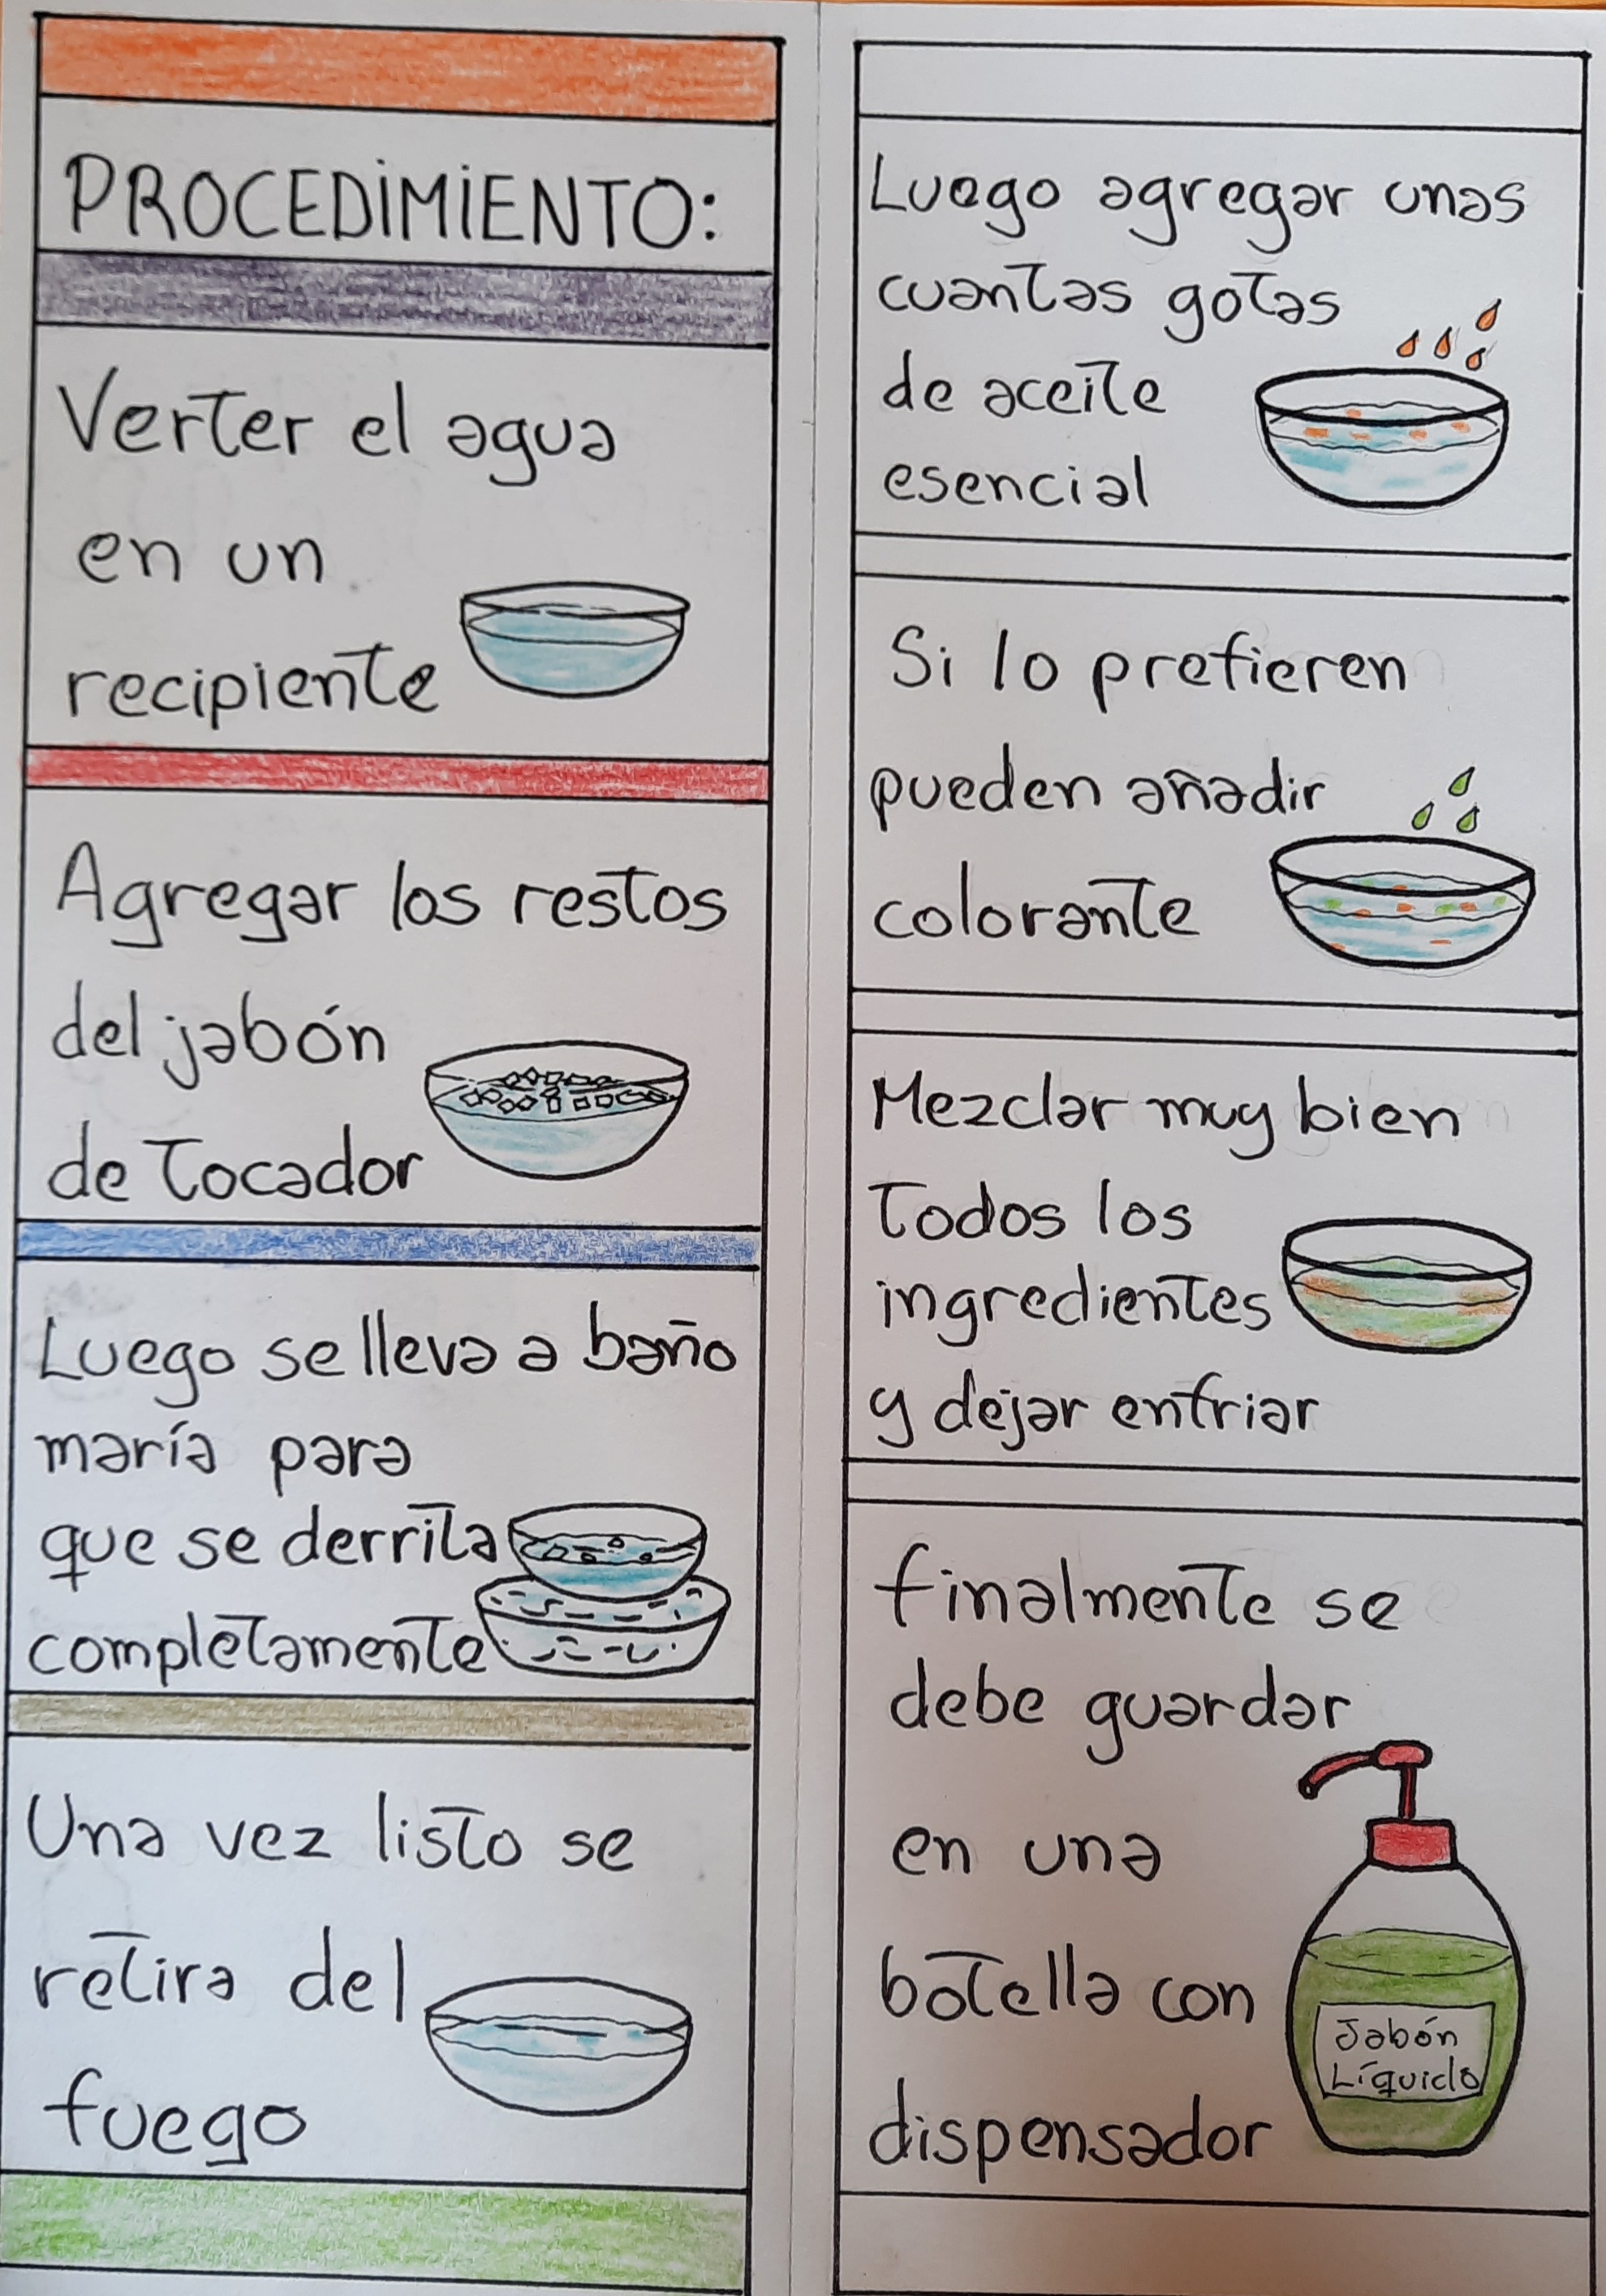 PROCEDIMIENTO:
Verter el agua
en un
recipiente
Agregar los restos
del jabón
de tocador
Luego se lleva a baño
maría para
que se derrita
completamente
Una vez listo se
retira del
fuego
Luego agregar unas
cuantas gotas
de aceite
esencial
Si lo prefieren
pueden añadir
colorante
Mezclar muy bien
Todos los
ingredientes
y dejar enfriar
finalmente se
debe guardar
en una
botella con
dispensador
Jabón
Líquido